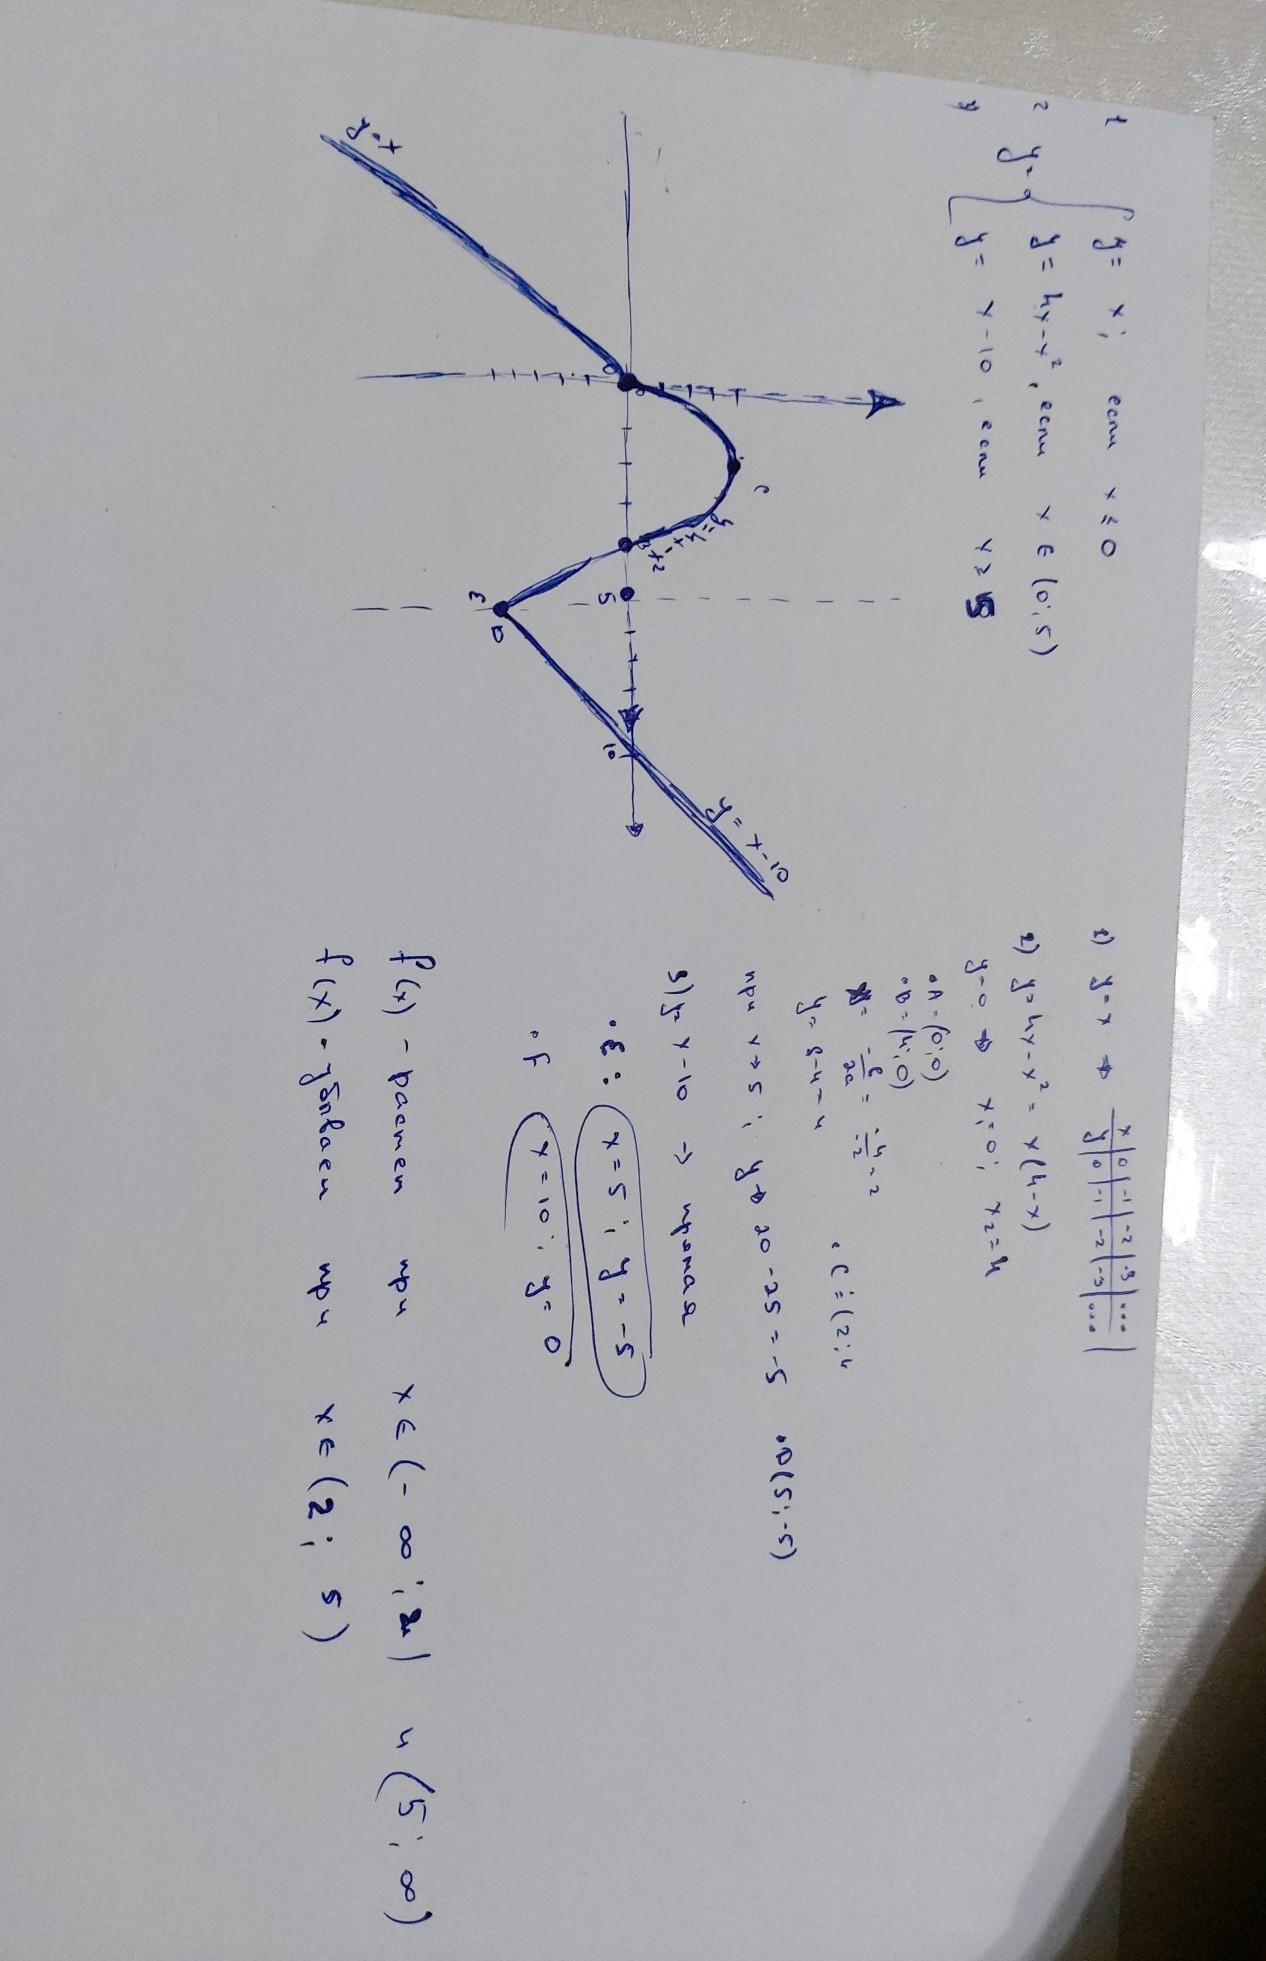 1 y = x; если x ≤ 0
2 y= y = 4x-x², если x ∈ (0; 5)
y = x-10, если x ≥ 5
y=x
C
y=4x-x²
B
5
E
D
10
y = x-10
1) y=x ⇒ x | 0 | -1 | -2 | -3 | ... |
y | 0 | -1 | -2 | -3 | ... |
2) y=4x-x² = x(4-x)
y=0 ⇒ x₁=0; x₂=4
• A=(0;0)
• B=(4;0)
= -b/2a = -4/-2 = 2
y = 8-4=4 • C: (2;4
при x→5; y → 20-25=-5 • D(5;-5)
3) y= x-10 → прямая
• E: x=5; y=-5
• F x=10; y=0
f(x) - растет при x ∈ (-∞; 2) и (5; ∞)
f(x) - убывает при x ∈ (2; 5)